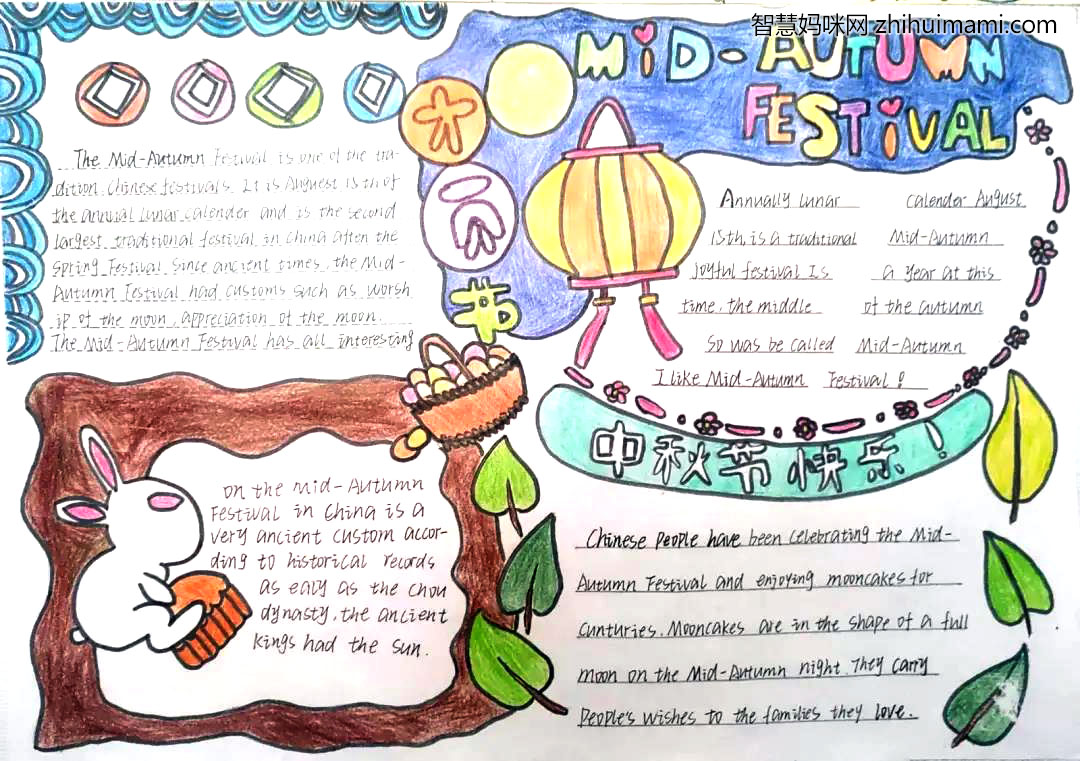 智慧妈咪网 zhihuimami.com
MiD-AUTUMN
FESTiVAL
The Mid-Autumn Festival is one of the tra-
dition Chinese festivals. It is August 15th of
the annual lunar calender and is the second
largest traditional festival in china after the
Spring Festival. Since ancient times, the Mid-
Autumn Festival had customs such as worsh
ip of the moon, appreciation of the moon.
The Mid-Autumn Festival has all interesting
Annually lunar calender August
15th, is a traditional Mid-Autumn
joyful festival Is a year at this
time, the middle of the autumn
So was be called Mid-Autumn
I like Mid-Autumn Festival!
中秋节快乐!
on the mid-Autumn
Festival in China is a
very ancient custom accor-
ding to historical records
as ealy as the chou
dynasty, the ancient
kings had the sun.
Chinese people have been celebrating the Mid-
Autumn Festival and enjoying mooncakes for
cunturies. Mooncakes are in the shape of a full
moon on the Mid-Autumn night. They carry
people's wishes to the families they love.